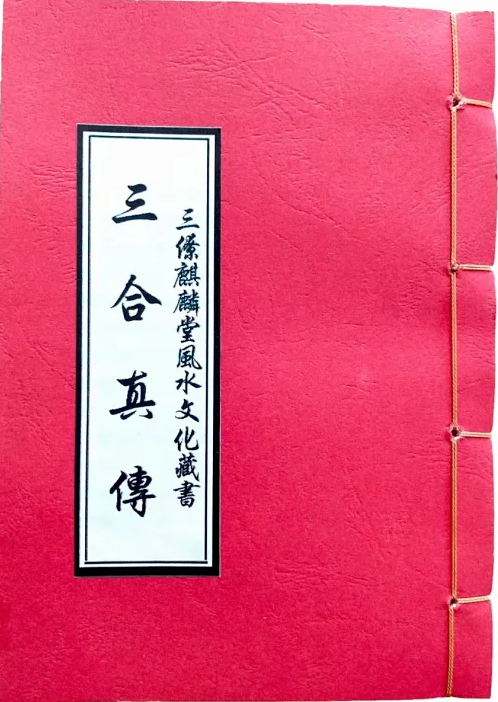 三僚麒麟堂風水文化藏書
三合真傳